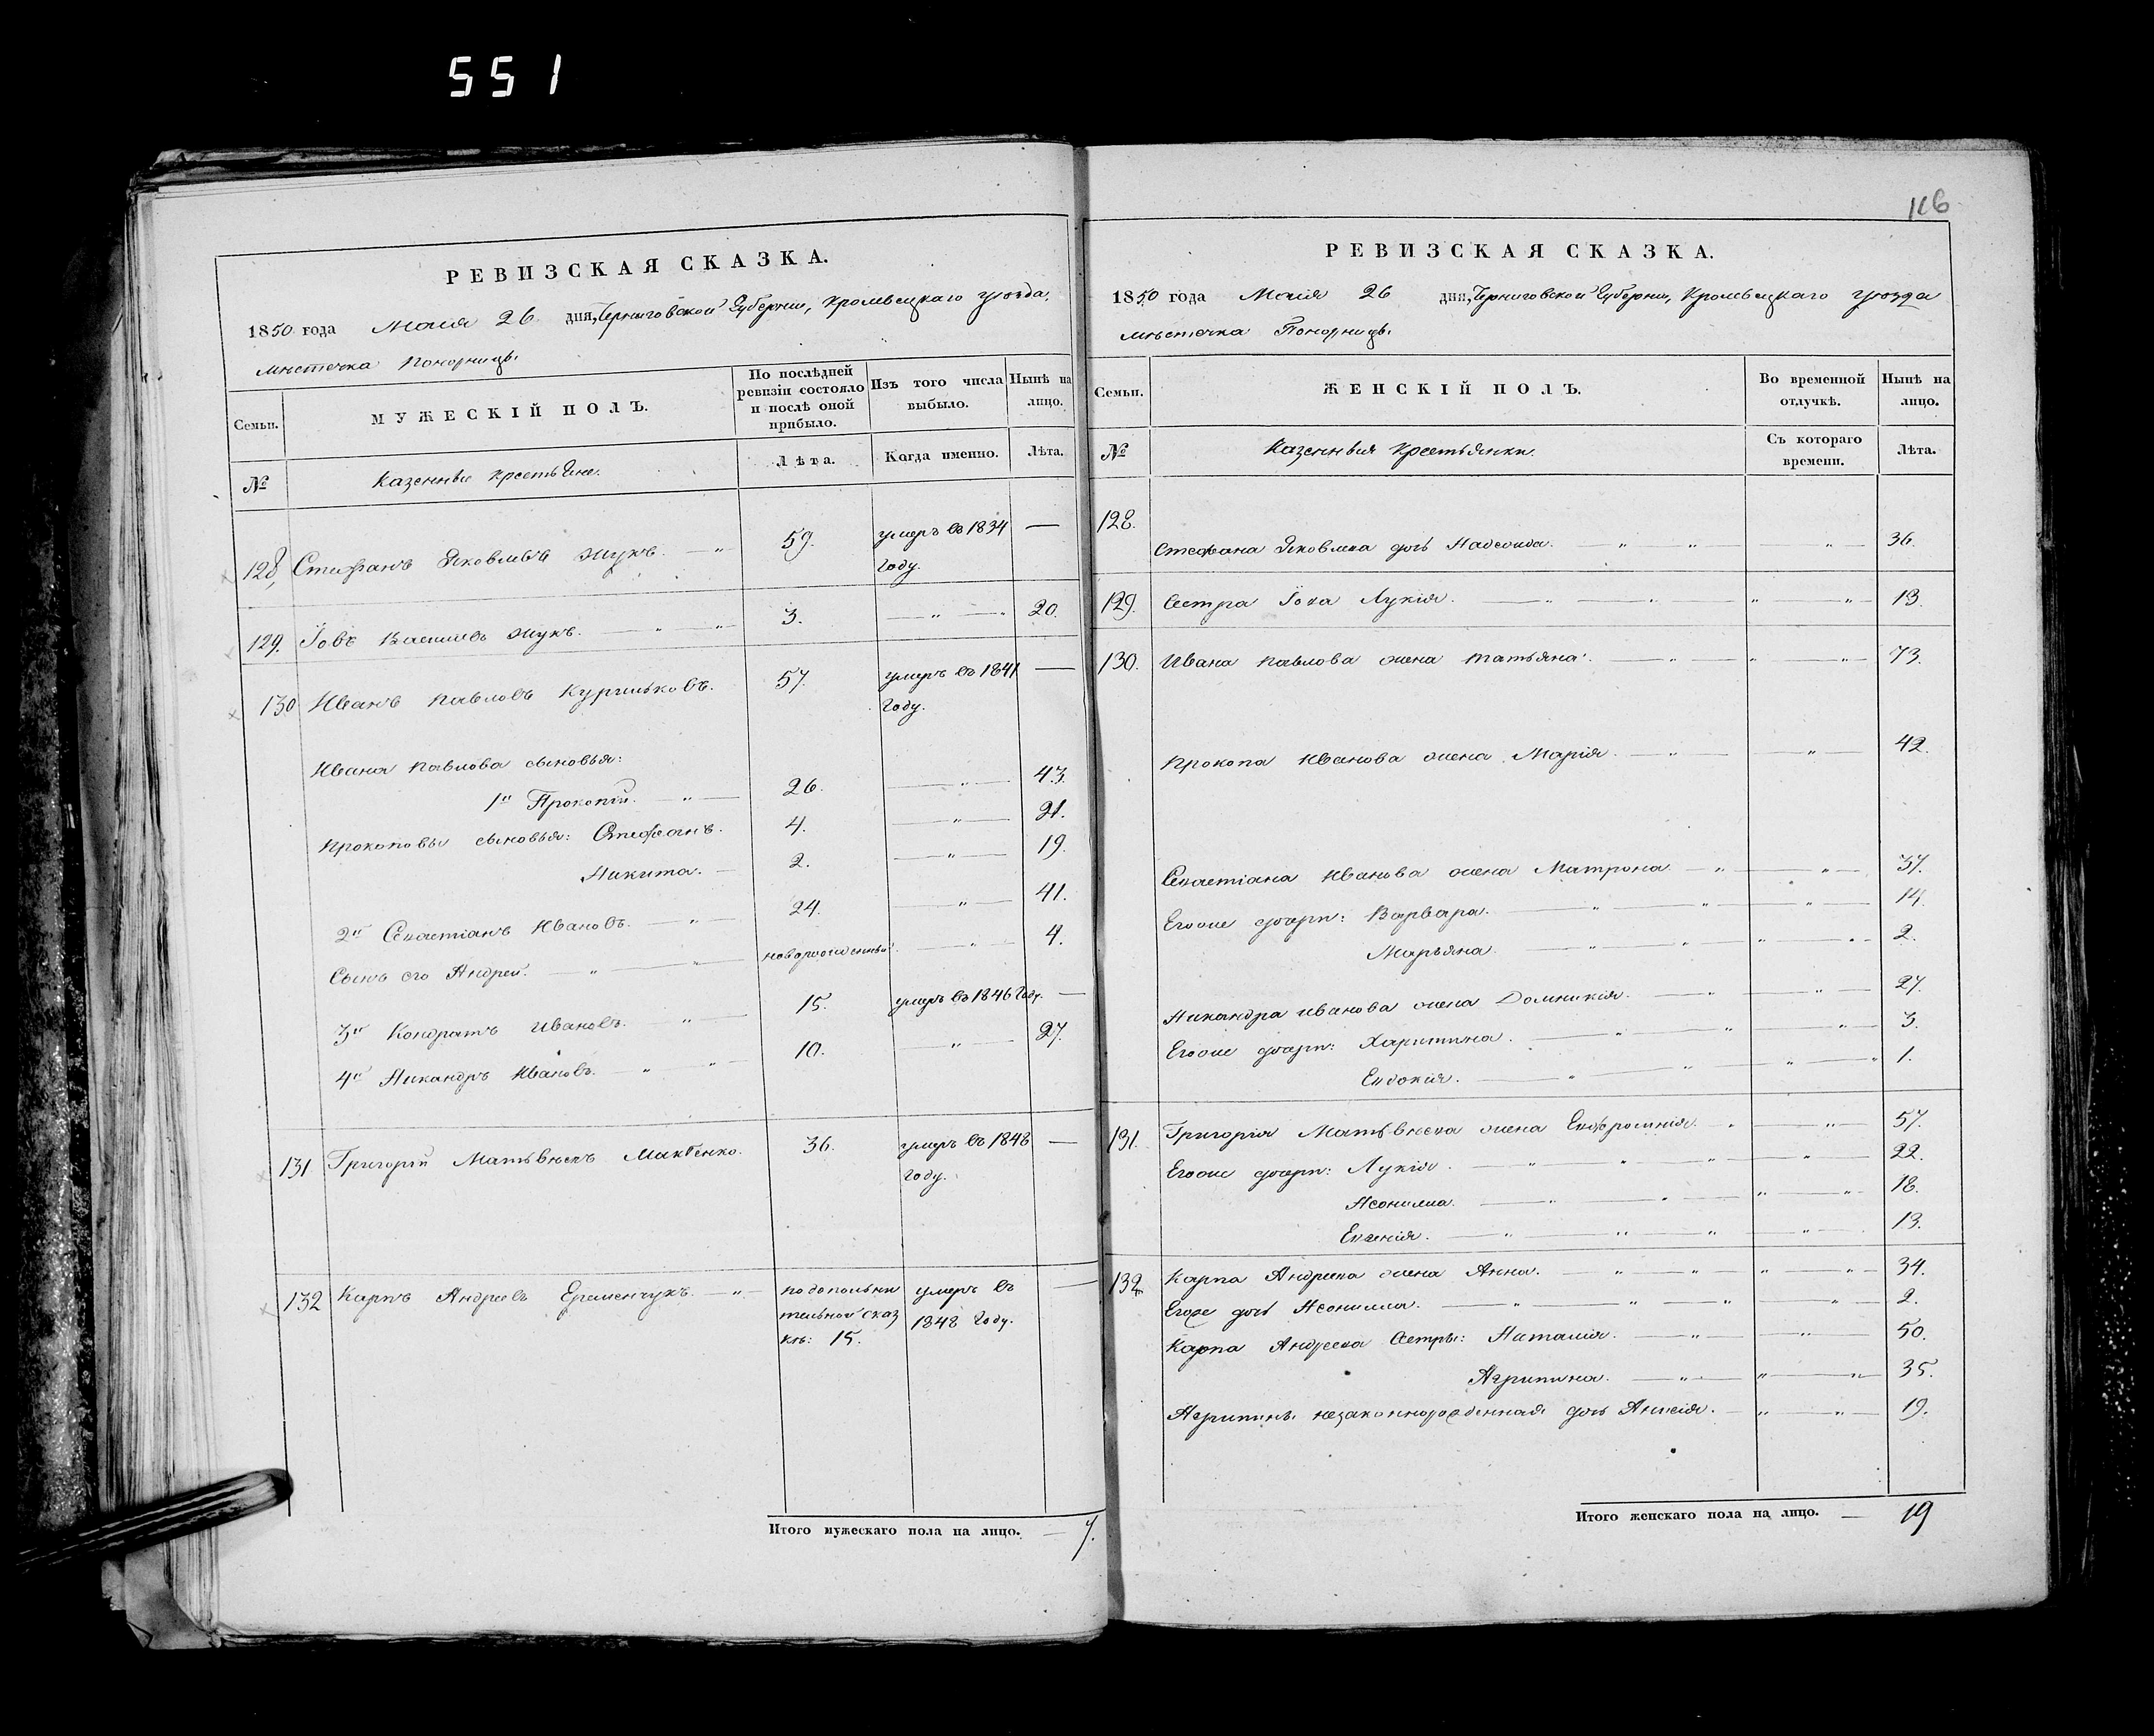 551
116
РЕВИЗСКАЯ СКАЗКА.
1850 года Маія 26 дня, Черниговской Губернии, Кролевецкаго уѣзда,
мѣстечка Понорницы.
Семьи.
МУЖЕСКІЙ ПОЛЪ.
По послѣдней ревизіи состояло и послѣ оной прибыло.
Изъ того числа выбыло.
Нынѣ на лицо.
№
Казенные крестьяне.
Лѣта.
Когда именно.
Лѣта.
128. Стефанъ Яковлевъ Жукъ. 59. умеръ въ 1834 —
году.
129. Іовъ Васильевъ Жукъ. 3. 20.
130 Иванъ Павловъ Курильковъ. 57. умеръ въ 1841 —
году.
Ивана Павлова сыновья:
1й Прокопій. 26. 43.
Прокоповы сыновья: Стефанъ. 4. 21.
Никита. 2. 19.
2й Севастіанъ Ивановъ. 24. 41.
Сынъ его Андрей. новорожденный. 4.
3й Кондратъ Ивановъ. 15. умеръ въ 1846 году. —
4й Никандръ Ивановъ. 10. 27.
131 Григорій Матвѣевъ 36. умеръ въ 1848 —
году.
132 Карпъ Андреевъ Еременчукъ. по дополни умеръ въ —
тельной сказ 1848 году.
кѣ: 15.
Итого мужескаго пола на лицо. — 7.
РЕВИЗСКАЯ СКАЗКА.
1850 года Маія 26 дня, Черниговской Губернии, Кролевецкаго уѣзда
мѣстечка Понорницы.
Семьи.
ЖЕНСКІЙ ПОЛЪ.
Во временной отлучкѣ.
Нынѣ на лицо.
№
Казенныя крестьянки.
Съ котораго времени.
Лѣта.
128.
Стефана Яковлева дочь 36.
129. Сестра Іова Лукія. 13.
130. Ивана Павлова жена Татьяна. 73.
Прокопа Иванова жена Марія. 42.
Севастіана Иванова жена Матрона 37.
Егоже дочери: Варвара. 14.
Марьяна. 2.
Никандра Иванова жена Домникія. 27.
Егоже дочери: Харитина. 3.
Евдокія. 1.
131. Григорія Матвѣева жена Евфросинія. 57.
Егоже дочери: Лукія. 22.
Неонилла. 18.
Евгенія. 13.
132. Карпа Андреева жена Анна. 34.
Егоже дочь Неонилла. 2.
Карпа Андреева сестры: Наталія. 50.
Агрипина. 35.
Агрипины незаконнорожденная дочь Анисія. 19.
Итого женскаго пола на лицо. — 19